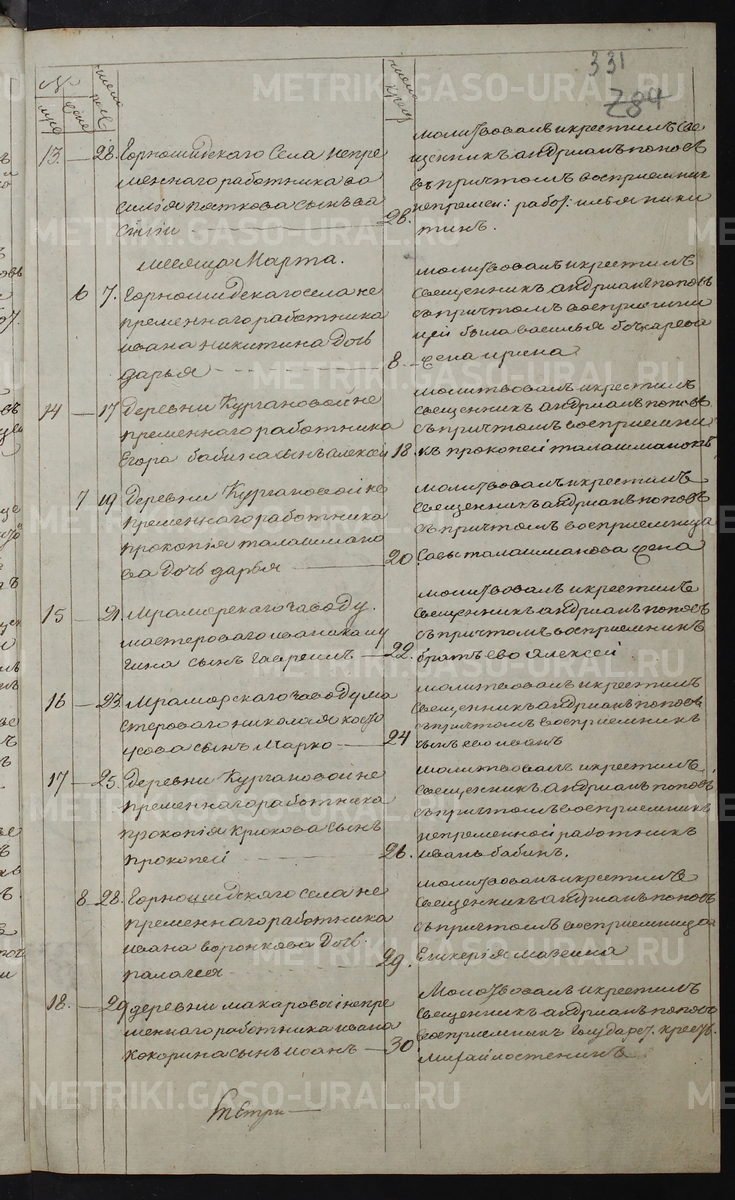 331
284
№
муж
жене
числа
роже
числа
креще
13. — 28. Горношитскаго Села непре
меннаго работника ва
силія пяткова сынъ ва
силій — 28.
молитвовалъ и крестилъ све
щенникъ андрианъ поповъ
съ причтомъ восприемник
непремен: работ: илья ники
тинъ.
месяца Марта.
6 7. Горношидскаго села не
пременнаго работника
ивана никитина дочь
дарья — 8
молитвовалъ и крестилъ
священникъ андрианъ поповъ
съ причтомъ восприемни
цей была василья бочкарева
жена ирина
14 — 17 деревни Кургановой не
пременнаго работника
Егора бабина сынъ алексей 18
молитвовалъ и крестилъ
священникъ андрианъ поповъ
съ причтомъ восприемни
къ прокопей талашмановъ
7 19 деревни Кургановой не
пременнаго работника
прокопія талашмано
ва дочь дарья — 20
молитвовалъ и крестилъ
священникъ андрианъ поповъ
съ причтомъ восприемница
савы талашманова жена
15 — 21. Мраморскаго заводу.
мастероваго ивана
сынъ гавриилъ — 22.
молитвовалъ и крестилъ
священникъ андрианъ поповъ
съ причтомъ восприемникъ
братъ ево Алексей
16 — 23. Мраморскаго заводу ма
стероваго николая
сынъ Марко — 24
молитвовалъ и крестилъ
священникъ андрианъ поповъ
съ причтомъ восприемникъ
сынъ ево иванъ
17 — 25. деревни Кургановой не
пременнаго работника
прокопія крюкова сынъ
прокопей — 26.
молитвовалъ и крестилъ
священникъ андрианъ поповъ
съ причтомъ восприемникъ
непременной работникъ
иванъ бабинъ.
8 — 28. Горношидскаго села не
пременнаго работника
ивана воронкова дочь
палагея — 29.
молитвовалъ и крестилъ
священникъ андрианъ поповъ
съ причтомъ восприемница
Гликерія мазеина
18. — 29 деревни макаровой непре
меннаго работника ивана
кокорина сынъ иоанъ — 30
Молитвовалъ и крестилъ
священникъ андрианъ поповъ
восприемникъ государст. крест.
METRIKI.GASO-URAL.RU